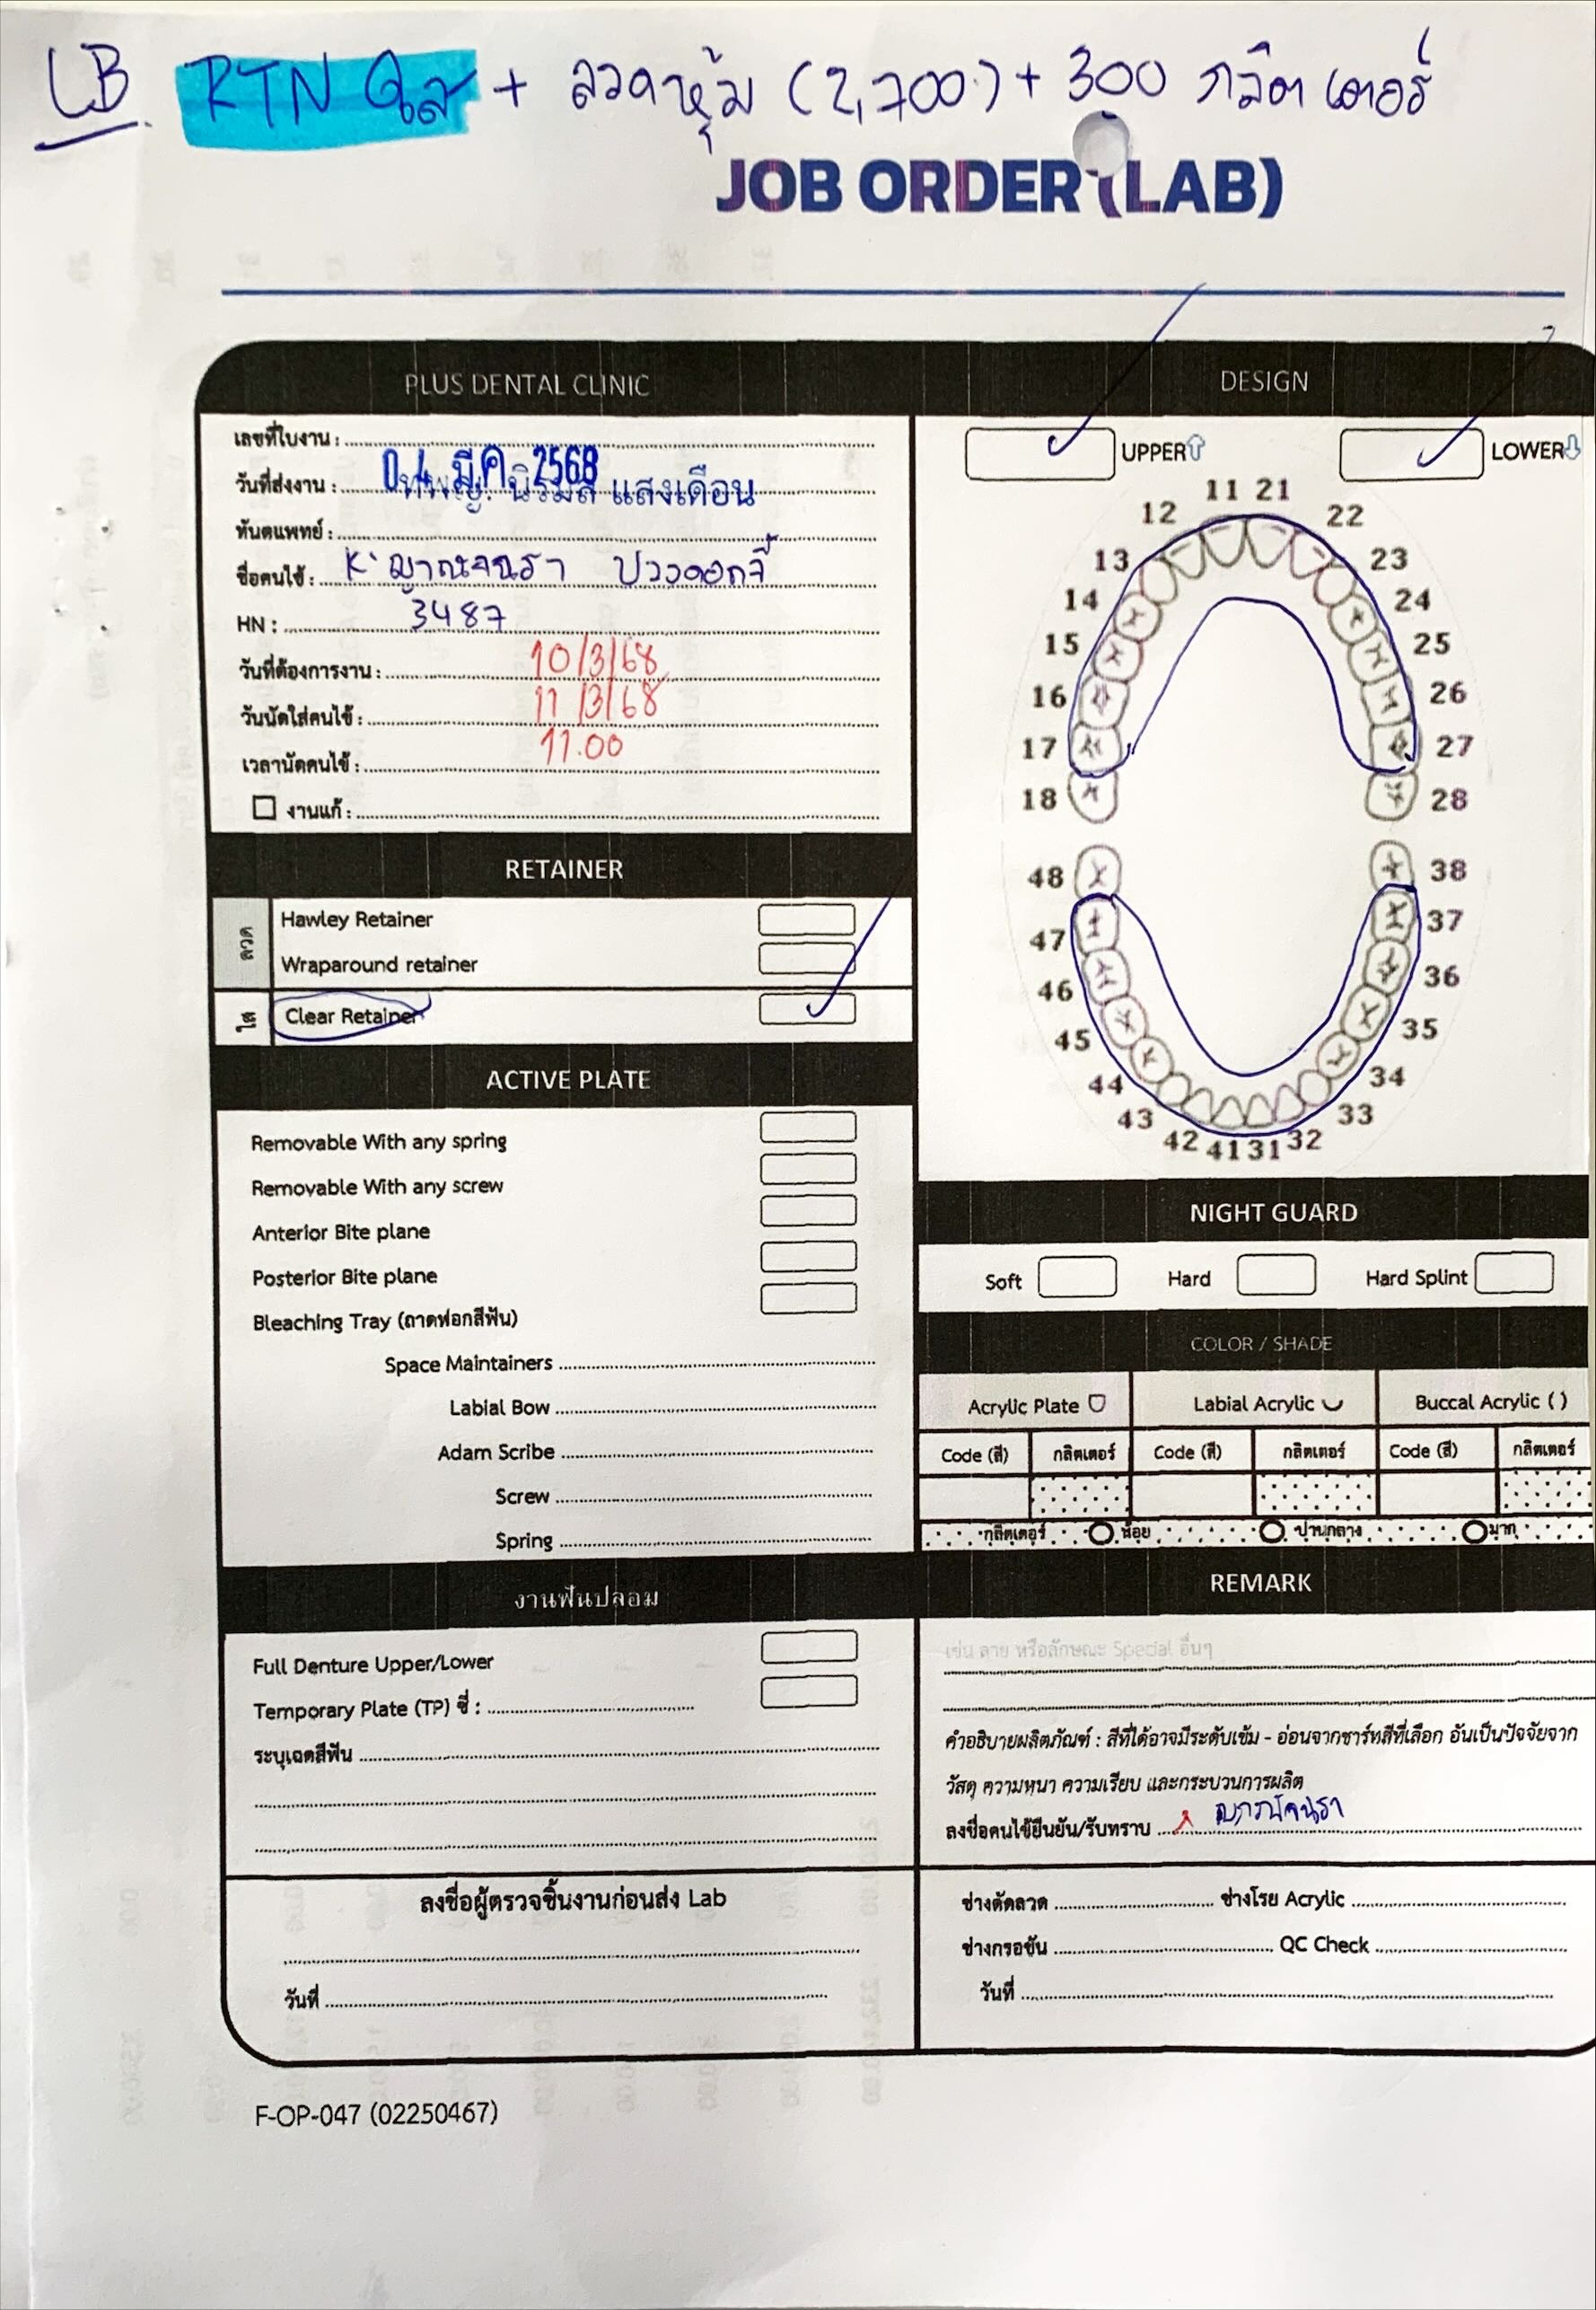 LB RTN ใส + ลวดหุ้ม (2,700) + 300 กลิตเตอร์
JOB ORDER (LAB)
PLUS DENTAL CLINIC
เลขที่ใบงาน :
วันที่ส่งงาน : 04 มี.ค. 2568
ทพญ. นิรมล แสงเดือน
ทันตแพทย์ :
ชื่อคนไข้ : K'
HN : 3487
วันที่ต้องการงาน : 10/3/68
วันนัดใส่คนไข้ : 11/3/68
เวลานัดคนไข้ : 11.00
งานแก้ :
RETAINER
ลวด
Hawley Retainer
Wraparound retainer
ใส
Clear Retainer
ACTIVE PLATE
Removable With any spring
Removable With any screw
Anterior Bite plane
Posterior Bite plane
Bleaching Tray (ถาดฟอกสีฟัน)
Space Maintainers
Labial Bow
Adam Scribe
Screw
Spring
งานฟันปลอม
Full Denture Upper/Lower
Temporary Plate (TP) ซี่ :
ระบุเฉดสีฟัน
ลงชื่อผู้ตรวจชิ้นงานก่อนส่ง Lab
วันที่
DESIGN
UPPER LOWER
11 21
12 22
13 23
14 24
15 25
16 26
17 27
18 28
48 38
47 37
46 36
45 35
44 34
43 33
42 41 31 32
NIGHT GUARD
Soft Hard Hard Splint
COLOR / SHADE
Acrylic Plate Labial Acrylic Buccal Acrylic ( )
Code (สี) กลิตเตอร์ Code (สี) กลิตเตอร์ Code (สี) กลิตเตอร์
กลิตเตอร์ น้อย ปานกลาง มาก
REMARK
เช่น ลาย หรือลักษณะ Special อื่นๆ
คำอธิบายผลิตภัณฑ์ : สีที่ได้อาจมีระดับเข้ม - อ่อนจากชาร์ทสีที่เลือก อันเป็นปัจจัยจาก
วัสดุ ความหนา ความเรียบ และกระบวนการผลิต
ลงชื่อคนไข้ยืนยัน/รับทราบ
ช่างดัดลวด ช่างโรย Acrylic
ช่างกรอขัน QC Check
วันที่
F-OP-047 (02250467)